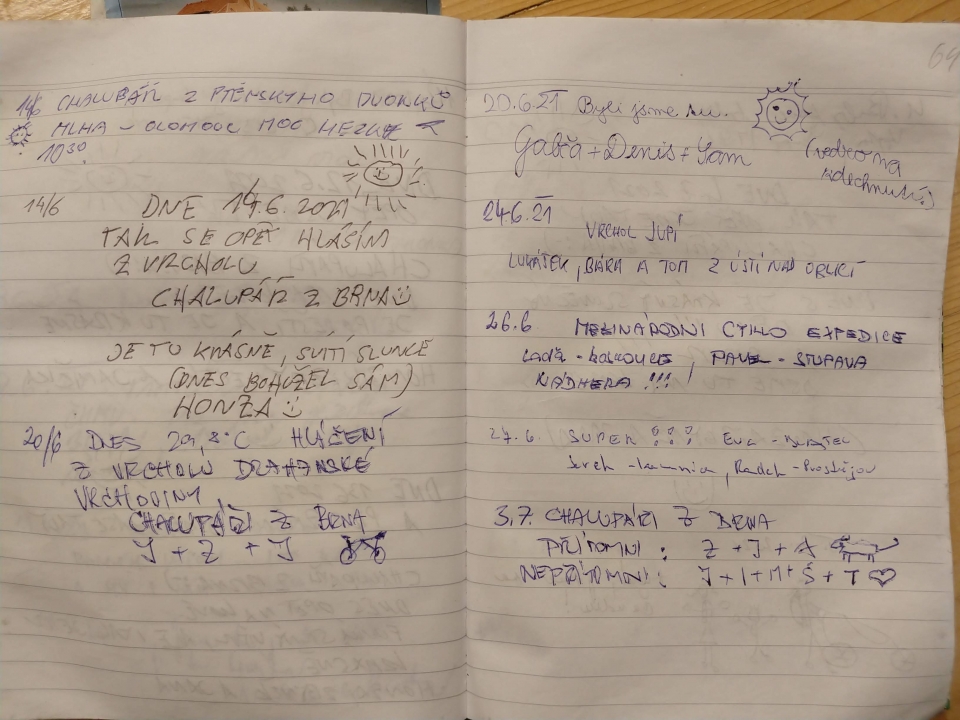 14/6 CHALUPÁŘ Z PTÉNSKÝHO DVORKU
MLHA - OLOMOUC MOC HEZKY
10³⁰
14/6 DNE 14.6.2021
TAK SE OPĚT HLÁSÍM
Z VRCHOLU
CHALUPÁŘ Z BRNA
JE TU KRÁSNĚ, SVÍTÍ SLUNCE
(DNES BOHUŽEL SÁM)
HONZA
20/6 DNES 29,8°C HLÁŠENÍ
Z VRCHOLU DRAHANSKÉ
VRCHOVINY,
CHALUPÁŘI Z BRNA
J + Z + J
64
20.6.21 Byli jsme tu.
Gabča + Denis + Sam
(vedro na
zdechnutí)
24.6.21
VRCHOL JUPÍ
LUKÁŠEK, BÁRA A TOM Z ÚSTÍ NAD ORLICÍ
26.6 MEZINÁRODNI CYKLO EXPEDICE
Laďa - BOSKOVICE, PAVEL - STUPAVA
NÁDHERA!!!
27.6. SUPER !!! EVA -
- Kamnica, Radek - Prostějov
3.7. CHALUPÁŘI Z BRNA
PŘÍTOMNI: Z + J + A
NEPŘÍTOMNI: J + I + M + Š + T